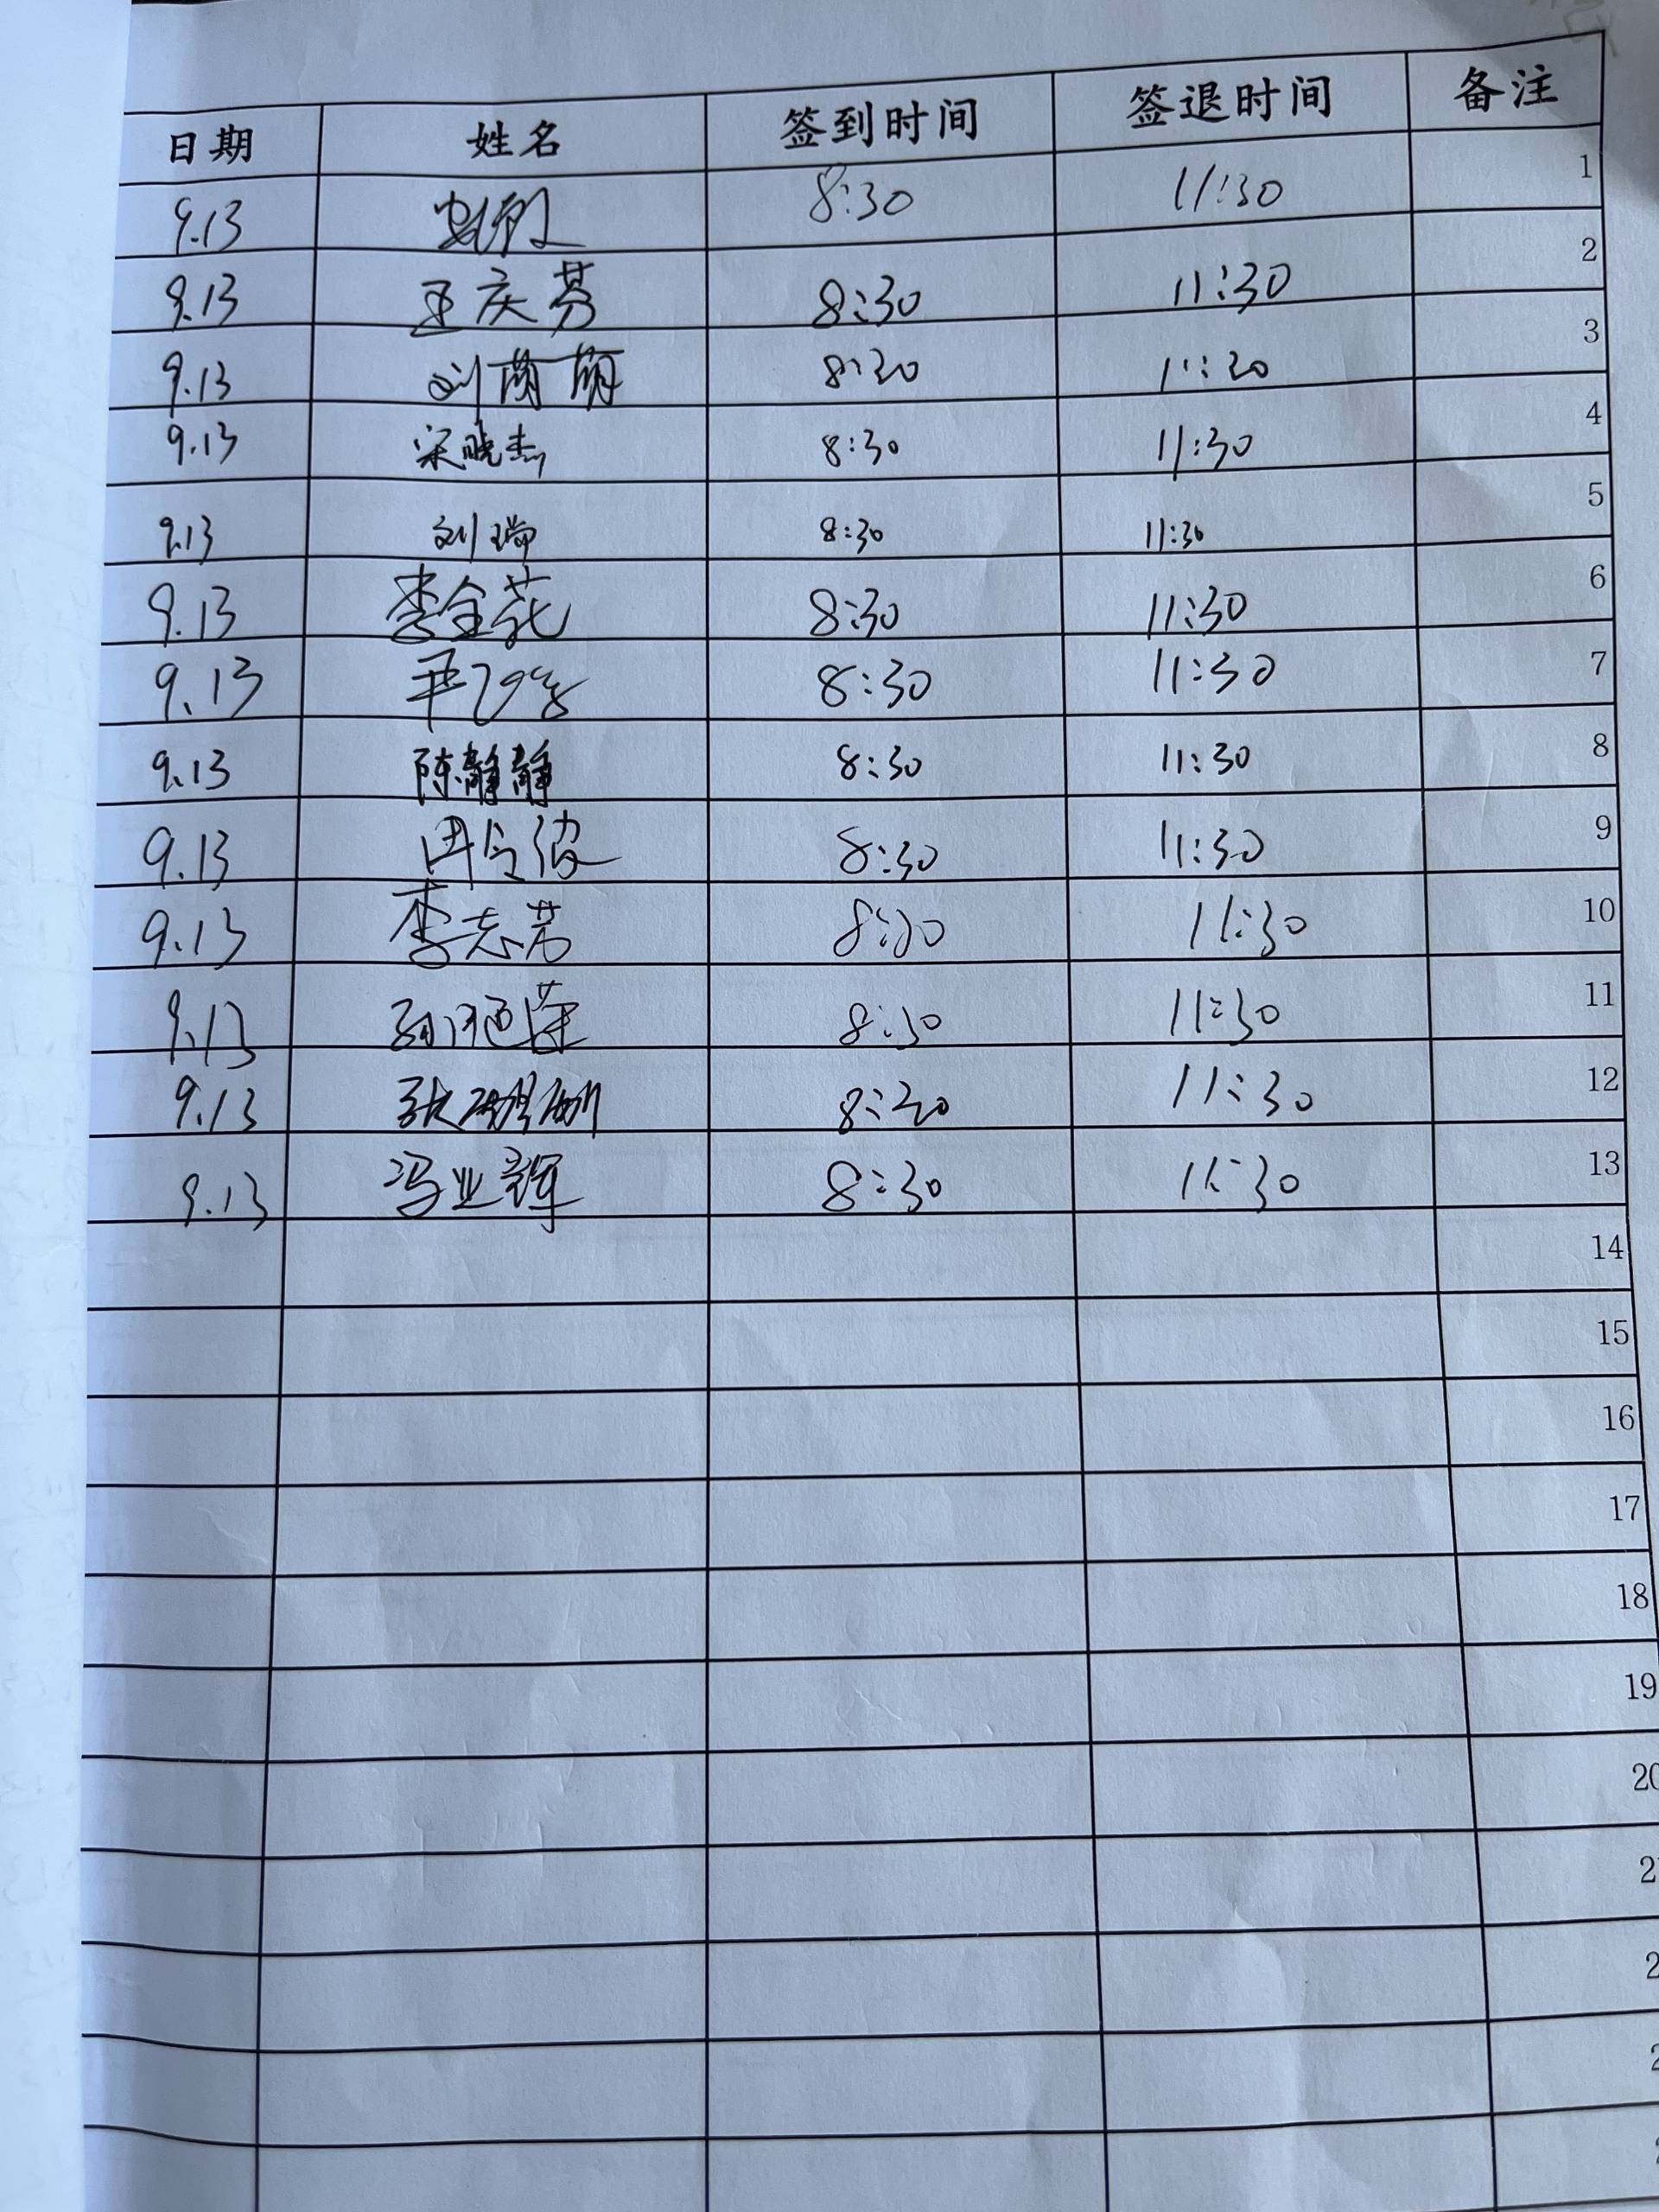 日期 姓名 签到时间 签退时间 备注
9.13 8:30 11:30 1
9.13 王庆芬 8:30 11:30 2
9.13 刘萌萌 8:30 11:30 3
9.13 宋晓杰 8:30 11:30 4
9.13 刘瑞 8:30 11:30 5
9.13 李金花 8:30 11:30 6
9.13 8:30 11:30 7
9.13 陈静静 8:30 11:30 8
9.13 8:30 11:30 9
9.13 李志芳 8:30 11:30 10
9.13 8:30 11:30 11
9.13 8:30 11:30 12
9.13 冯业辉 8:30 11:30 13
14
15
16
17
18
19
20
2
2
2